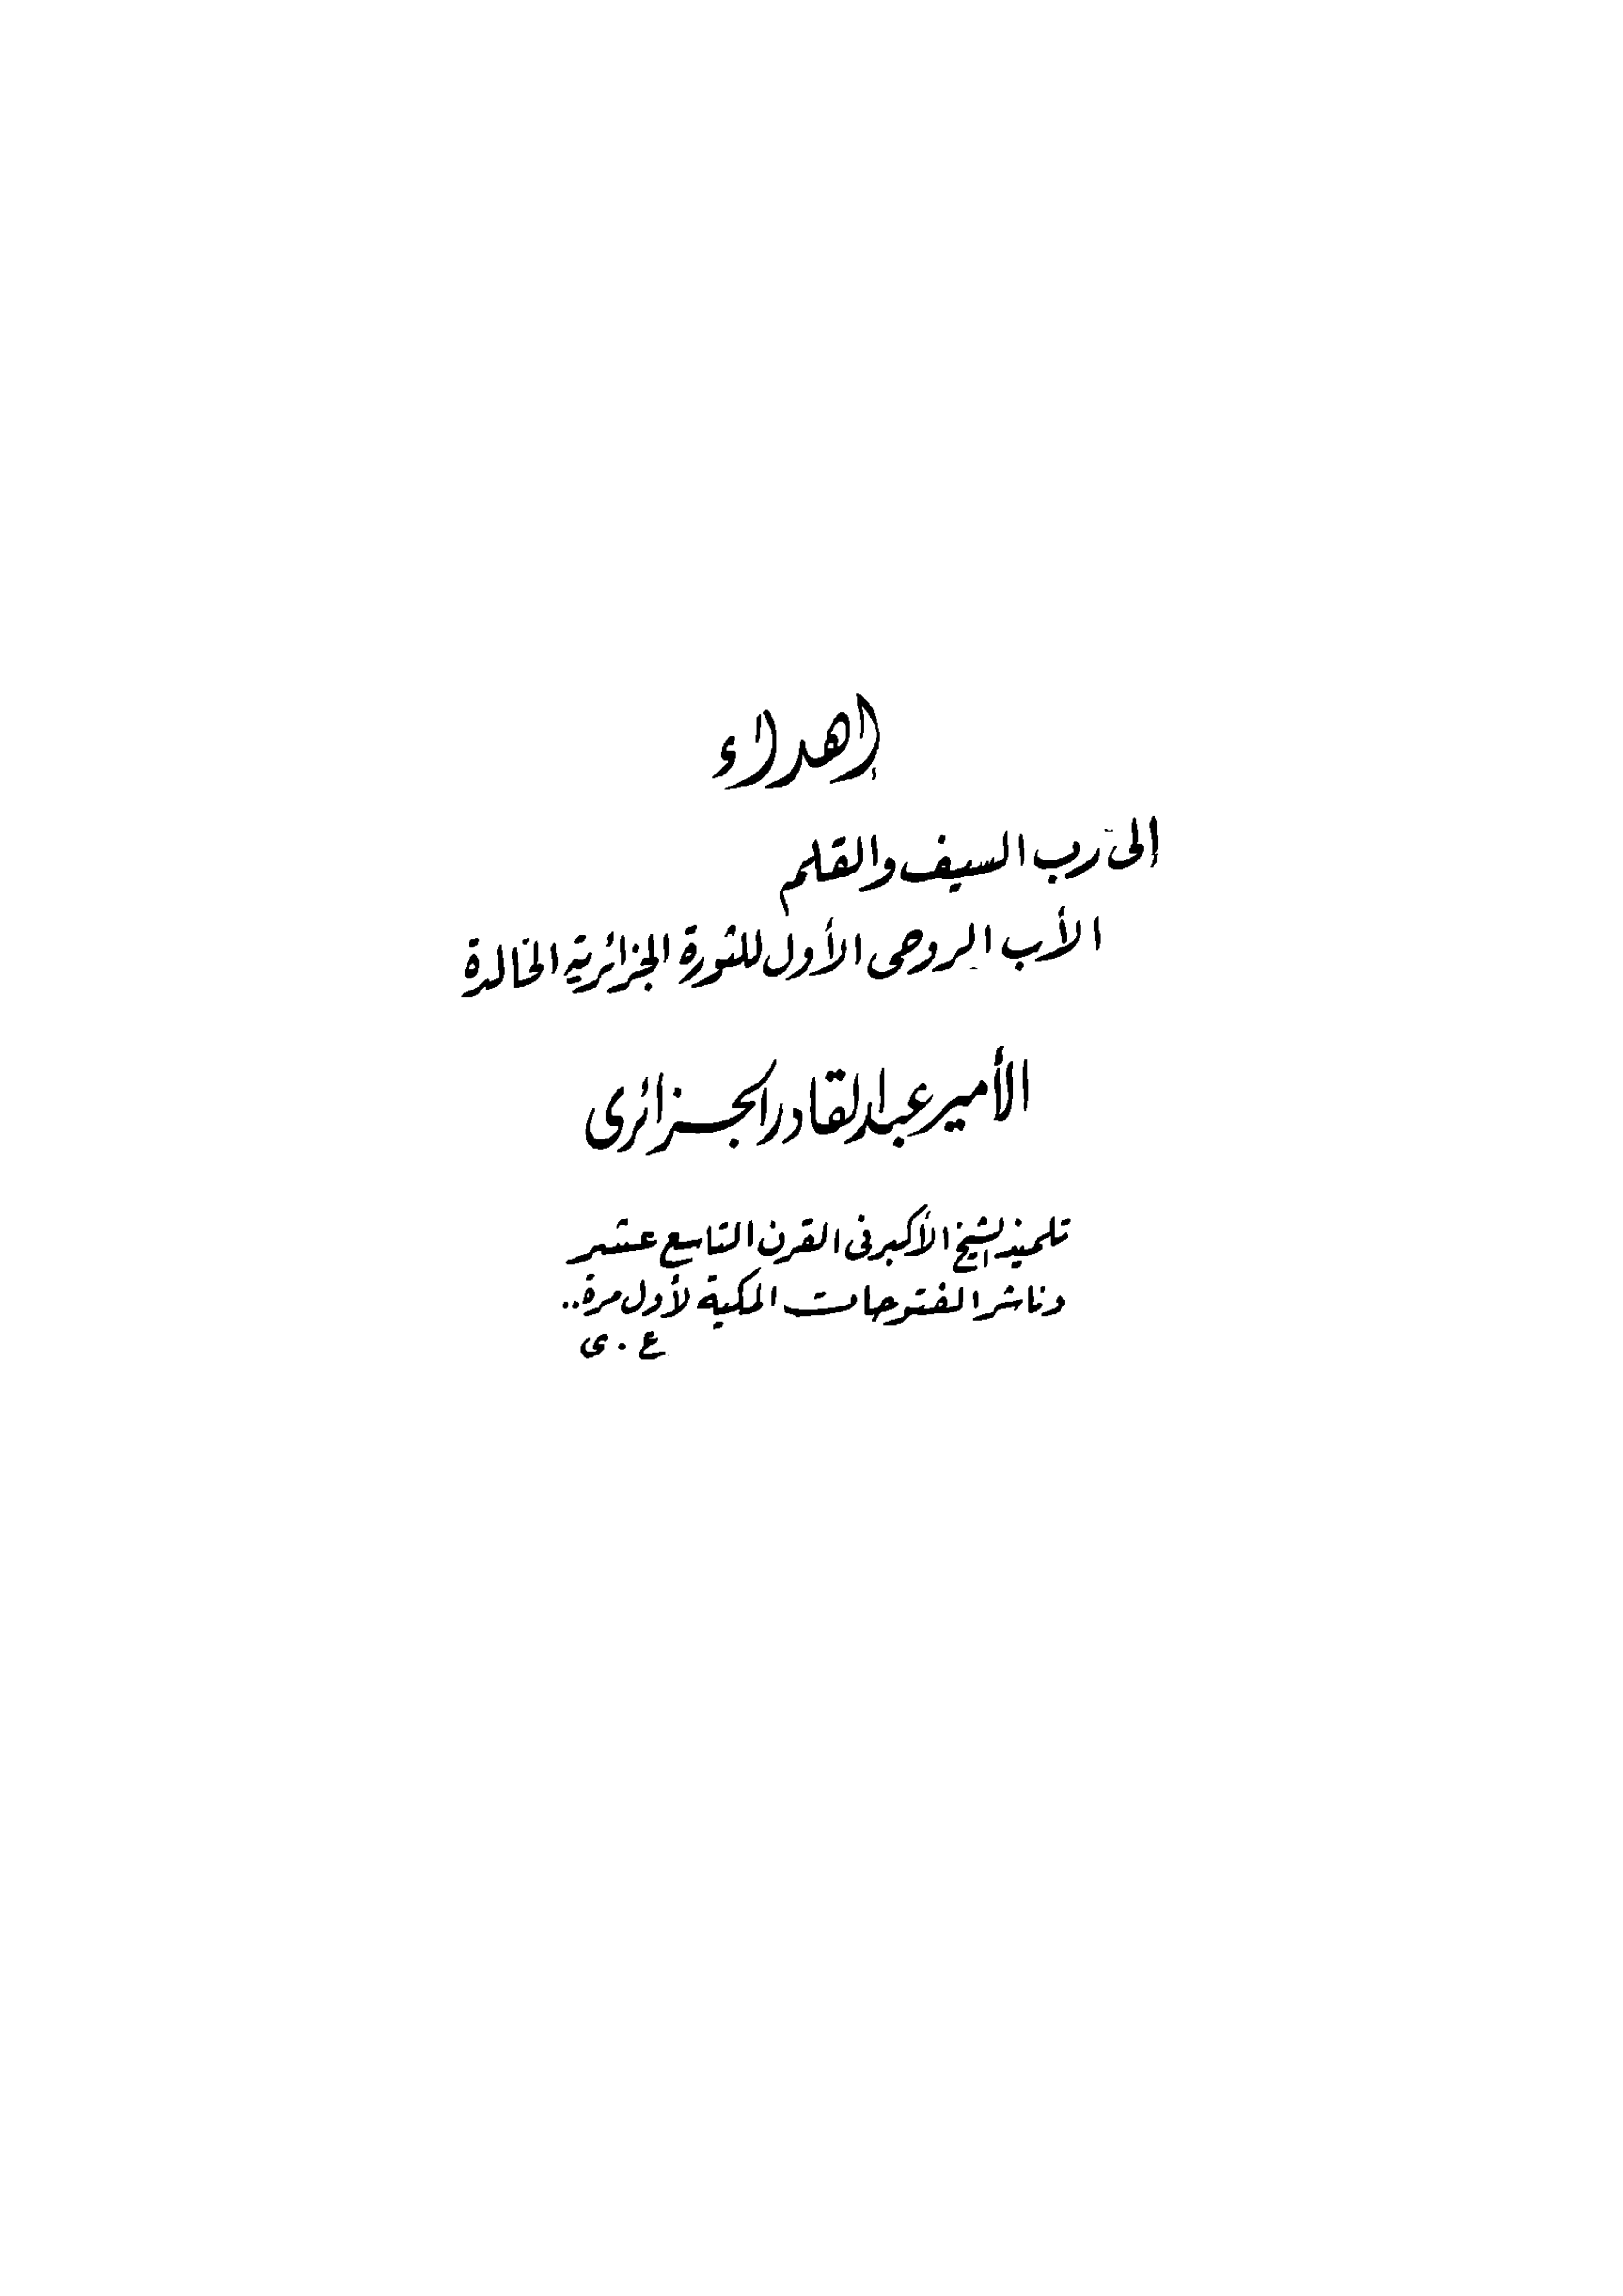 إهداء
إلى رب السيف والقلم
الأب الروحى الأول للثورة الجزائرية الخالدة
الأمير عبد القادر الجزائرى
تلميذ الشيخ الأكبر فى القرن التاسع عشر
وناشر الفتوحات المكية لأول مرة..
ع . ى